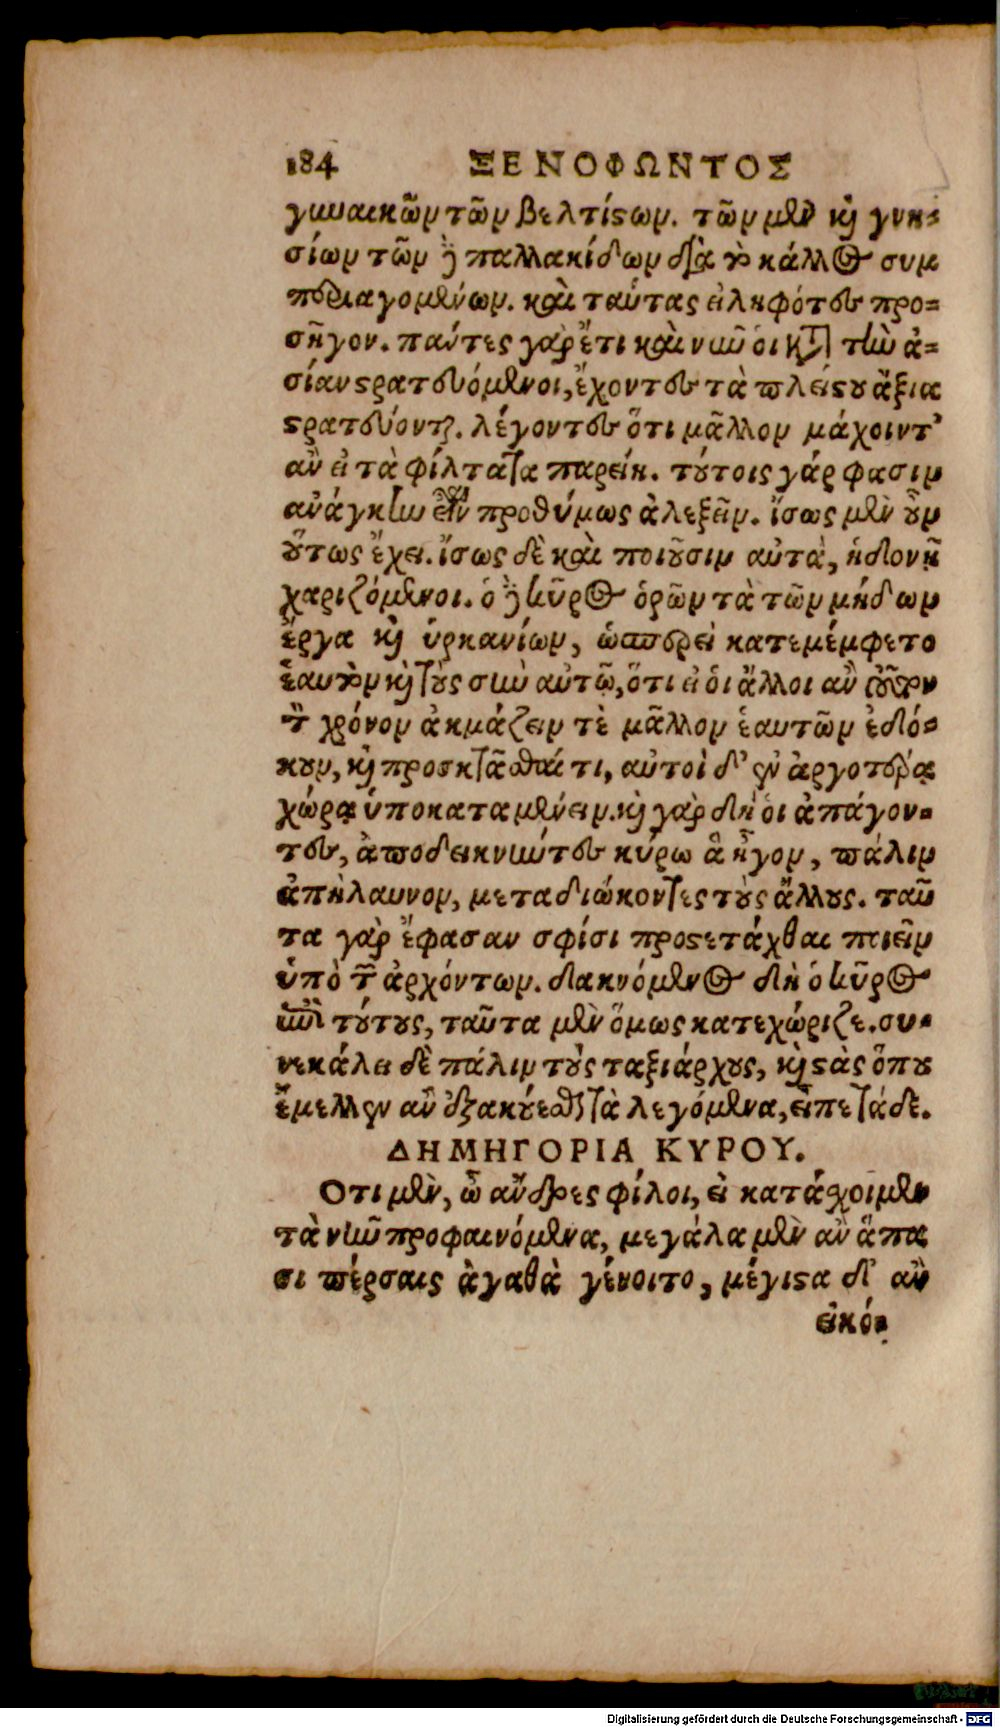 184 ΞΕΝΟΦΩΝΤΟΣ
γυναικῶν τῶν βελτίςων. τῶν μὲν κὶ γνη-
σίων τῶν δὲ παλλακίδων διὰ τὸ κάλλος συμ
περιαγομένων. καὶ ταύτας εἰληφότες προ-
σῆγον. πάντες γὰρ ἔτι καὶ νῦν οἱ κατὰ τὴν ἀ-
σίαν ςρατευόμενοι, ἔχοντες τὰ πλείςου ἄξια
ςρατεύονται. λέγοντες ὅτι μᾶλλον μάχοιντ’
ἂν εἰ τὰ φίλτατα παρείη. τούτοις γάρ φασιν
ἀνάγκην εἶναι προθύμως ἀλεξεῖν. ἴσως μὲν οὖν
οὕτως ἔχει. ἴσως δὲ καὶ ποιοῦσιν αὐτὰ, ἡδονῇ
χαριζόμενοι. ὁ δὲ κῦρος ὁρῶν τὰ τῶν μήδων
ἔργα κὶ ὑρκανίων, ὡσπερεὶ κατεμέμφετο
ἑαυτὸν κὶ τοὺς σὺν αὐτῷ, ὅτι εἰ οἱ ἄλλοι ἂν τοῦτον
τὸν χρόνον ἀκμάζειν τὲ μᾶλλον ἑαυτῶν ἐδό-
κουν, κὶ προσκτᾶσθαί τι, αὐτοὶ δ’ ἐν ἀργοτέρᾳ
χώρᾳ ὑποκαταμένειν. κὶ γὰρ δὴ οἱ ἀπάγον-
τες, ἀποδεικνύντες κύρω ἃ ἦγον, πάλιν
ἀπήλαυνον, μεταδιώκοντες τοὺς ἄλλους. ταῦ
τα γὰρ ἔφασαν σφίσι προςετάχθαι ποιεῖν
ὑπὸ τῶν ἀρχόντων. δακνόμενος δὴ ὁ κῦρος
ἐπὶ τούτοις, ταῦτα μὲν ὅμως κατεχώριζε. συ-
νεκάλει δὲ πάλιν τοὺς ταξιάρχους, κὶ ςὰς ὅπου
ἔμελλον ἂν ἐξακούεσθαι τὰ λεγόμενα, εἶπε τάδε.
ΔΗΜΗΓΟΡΙΑ ΚΥΡΟΥ.
Οτι μὲν, ὦ ἄνδρες φίλοι, εἰ κατάσχοιμεν
τὰ νῦν προφαινόμενα, μεγάλα μὲν ἂν ἅπα
σι πέρσαις ἀγαθὰ γένοιτο, μέγιςα δ’ ἂν
εἰκό-
Digitalisierung gefördert durch die Deutsche Forschungsgemeinschaft - DFG